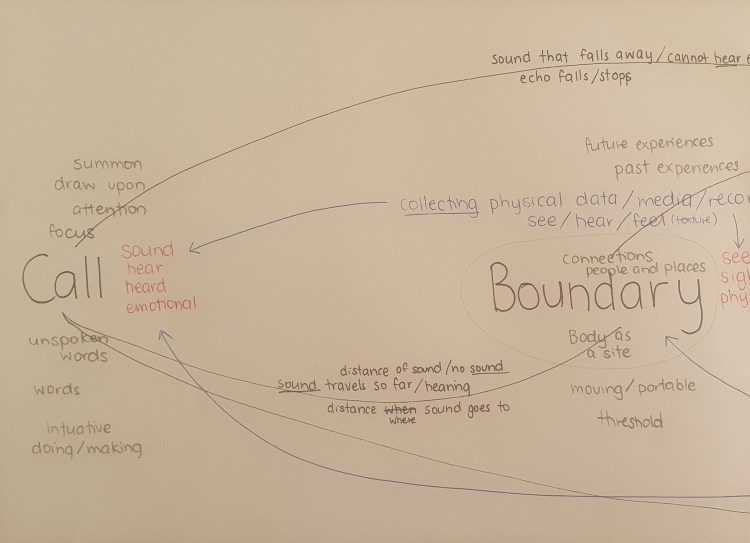 sound that falls away/cannot hear
echo falls/stops
summon
draw upon
attention
focus
Call
sound
hear
heard
emotional
unspoken
words
words
intuative
doing/making
future experiences
past experiences
collecting physical data/media/recor
see/hear/feel (texture)
connections
people and places
Boundary
Body as
a site
moving/portable
threshold
see
sig
phys
distance of sound/no sound
sound travels so far/hearing
distance when sound goes to
where